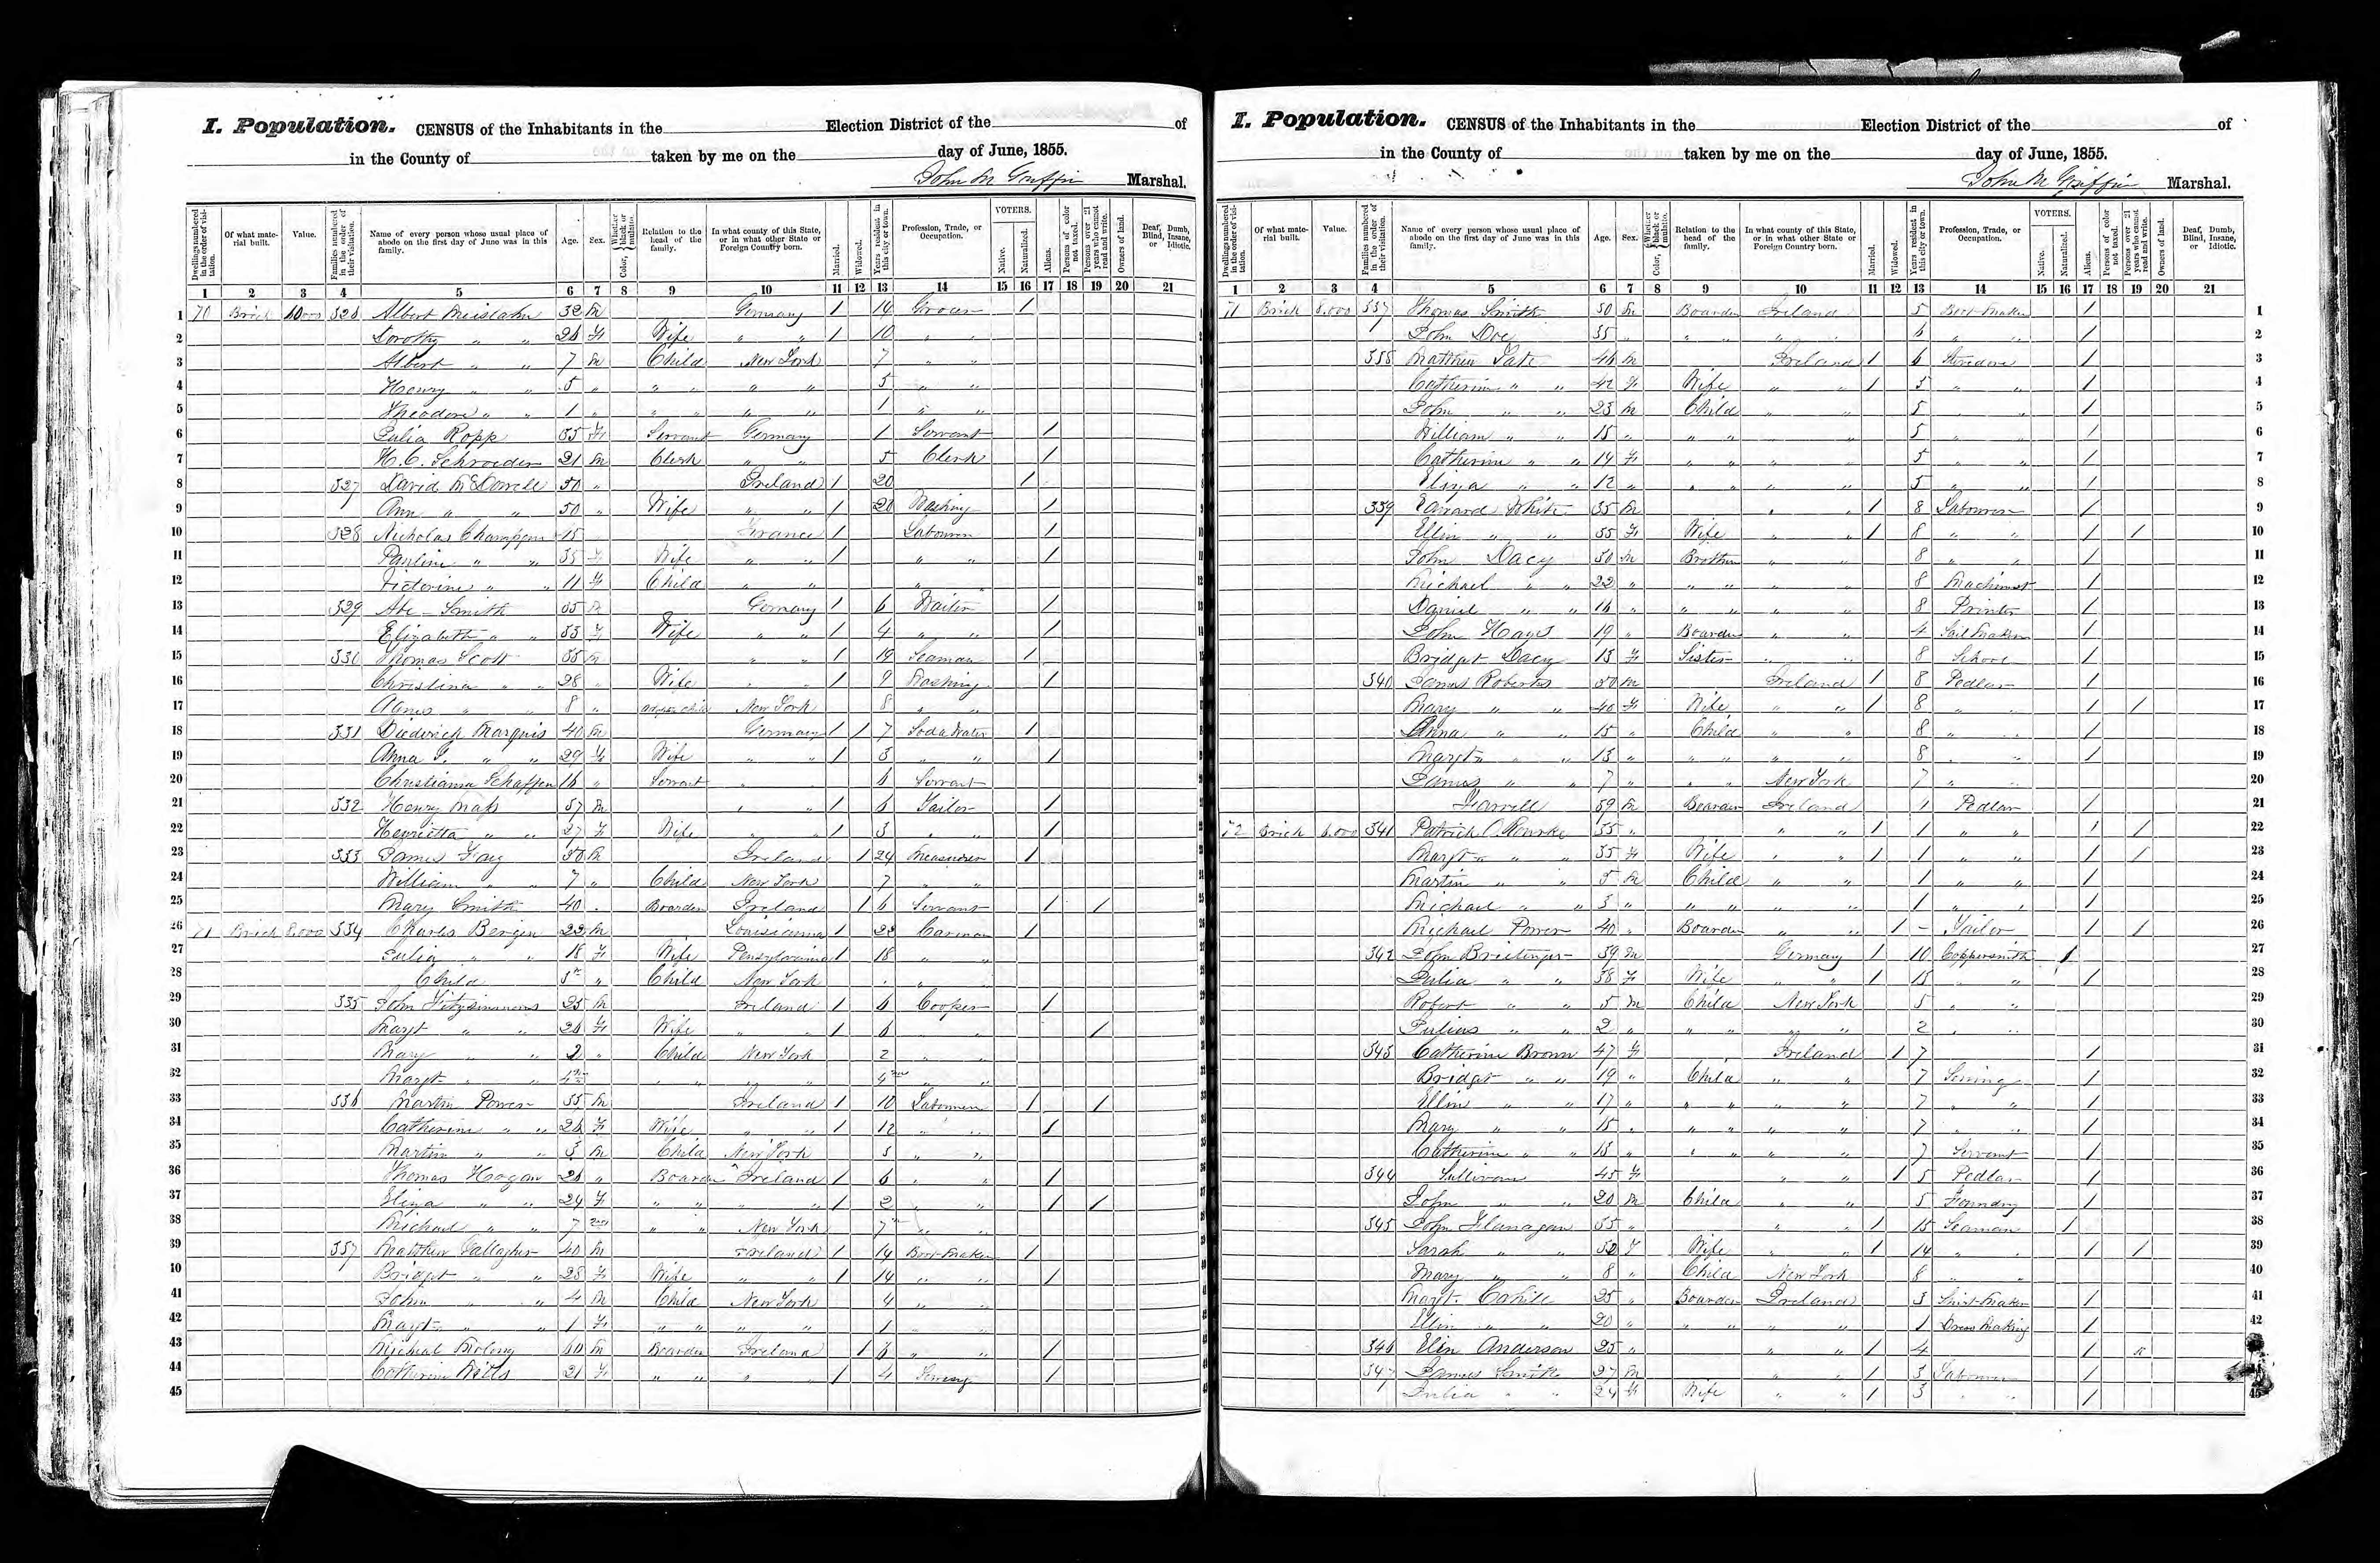 I. Population. CENSUS of the Inhabitants in the Election District of the of
in the County of taken by me on the day of June, 1855.
John M Griffin Marshal.
Dwellings numbered in the order of visitation. Of what material built. Value. Families numbered in the order of their visitation. Name of every person whose usual place of abode on the first day of June was in this family. Age. Sex. Color, Whether black or mulatto. Relation to the head of the family. In what county of this State, or in what other State or Foreign Country born. Married. Widowed. Years resident in this city or town. Profession, Trade, or Occupation. VOTERS. Native. Naturalized. Aliens. Persons of color not taxed. Persons over 21 years who cannot read and write. Owners of land. Deaf, Dumb, Blind, Insane, or Idiotic.
1 2 3 4 5 6 7 8 9 10 11 12 13 14 15 16 17 18 19 20 21
1 70 Brick 326 Albert 32 M Germany / 14 Grocer /
2 Dorothy " " 26 F Wife " " / 10 " "
3 Albert " " 7 M Child New York 7 " "
4 Henry " " 5 " " " " " 5 " "
5 Theodore " " 1 " " " " " 1 " "
6 Julia Ropp F Servant Germany 1 Servant /
7 H. C. Schroeder 21 M Clerk " " 5 Clerk /
8 327 David McDowell 50 " Ireland / 20 /
9 Ann " " 50 " Wife " " / 20 Washing /
10 328 Nicholas France / Labourer /
11 Pauline " " 35 F Wife " " / " " /
12 Victorine " " 11 F Child " " " "
13 329 Abe Smith 35 M Germany / 6 Waiter /
14 Elizabeth " " 33 F Wife " " / 4 " " /
15 330 Thomas Scott 35 M " " / 19 Seaman /
16 Christina " " 28 " Wife " " / 9 Washing /
17 Agnes " " 8 " Child New York 8 " "
18 331 Diederich Marquis 40 M Germany / / 7 Soda Water /
19 Anna " " 29 F Wife " " / 3 " " /
20 Christianna 16 " Servant " " 6 Servant
21 332 Henry 37 M " " / 6 Tailor /
22 Henrietta " " 27 F Wife " " / 3 " " /
23 333 James Fay 50 M Ireland / 24 Measurer /
24 William " " 7 " Child New York 7 " "
25 Mary Smith 40 " Boarder Ireland / 6 Servant / /
26 71 Brick 8.000 334 Charles Bergin 22 M Louisianna / 22 Carman /
27 Julia " " 18 F Wife Pensylvania / 18 " "
28 Child " Child New York " "
29 335 John Fitzsimmons 25 M Ireland / 6 Cooper /
30 Margt " " 26 F Wife " " / 6 " " /
31 Mary " " 2 " Child New York 2 " "
32 Margt " " " " " " "
33 336 Martin Power 35 M Ireland / 10 Labourer / /
34 Catherine " " 26 F Wife " " / 12 " " /
35 Martin " " 3 M Child New York 3 " "
36 Thomas Hogan 26 " Boarder Ireland / 6 " " /
37 Eliza " " 24 F " " " " / 2 " " / /
38 Michael " " 7 " " New York 7 " "
39 337 Matthew Gallagher 40 M Ireland / 14 Boot Maker /
40 Bridget " " 28 F Wife " " / 14 " " /
41 John " " 4 M Child New York 4 " "
42 Margt " " 1 F " " " " 1 " "
43 Michael 40 M Boarder Ireland / " " /
44 Catherine Wills 21 F " " " " / 4 Sewing /
45
I. Population. CENSUS of the Inhabitants in the Election District of the of
in the County of taken by me on the day of June, 1855.
John M Griffin Marshal.
Dwellings numbered in the order of visitation. Of what material built. Value. Families numbered in the order of their visitation. Name of every person whose usual place of abode on the first day of June was in this family. Age. Sex. Color, Whether black or mulatto. Relation to the head of the family. In what county of this State, or in what other State or Foreign Country born. Married. Widowed. Years resident in this city or town. Profession, Trade, or Occupation. VOTERS. Native. Naturalized. Aliens. Persons of color not taxed. Persons over 21 years who cannot read and write. Owners of land. Deaf, Dumb, Blind, Insane, or Idiotic.
1 2 3 4 5 6 7 8 9 10 11 12 13 14 15 16 17 18 19 20 21
71 Brick 8.000 337 Thomas Smith 30 M Boarder Ireland 5 Boot Maker / 1
John Doe 35 " " " " " 6 " " / 2
338 Matthew Tate 46 M Ireland / 6 Stevedore / 3
Catherine " " 42 F Wife " " / 5 " " / 4
John " " 23 M Child " " 5 " " / 5
William " " 15 " " " " " 5 " " / 6
Catherine " " 14 F " " " " 5 " " / 7
Eliza " " 12 " " " " " 5 " " / 8
339 Edward White 35 M " " / 8 Labourer / 9
Ellen " " 35 F Wife " " / 8 " " / / 10
John Dacy 30 M Brother " " 8 " " / 11
Michael " " 22 " " " " " 8 Machinist / 12
Daniel " " 16 " " " " " 8 Printer / 13
John Hays 19 " Boarder " " 4 Sail Maker / 14
Bridget Dacy 13 F Sister " " 8 School / 15
340 James Roberts 50 M Ireland / 8 Pedlar / 16
Mary " " 40 F Wife " " / 8 " " / / 17
Anna " " 15 " Child " " 8 " " / 18
Margt " " 13 " " " " " 8 " " / 19
James " " 7 " " " New York 7 " " 20
Farrell 39 M Boarder Ireland 1 Pedlar / 21
72 Brick 6.000 341 Patrick O'Rourke 35 " " " / 1 " " / / 22
Margt " " 35 F Wife " " / 1 " " / / 23
Martin " " 5 M Child " " 1 " " / 24
Michael " " 3 " " " " " 1 " " / 25
Michael Power 40 " Boarder " " / - Tailor / / 26
342 John Breitenger 39 M Germany / 10 Coppersmith / 27
Julia " " 38 F Wife " " / 15 " " / 28
Robert " " 5 M Child New York 5 " " 29
Julius " " 2 " " " " " 2 " " 30
343 Catherine Brown 47 F Ireland / 7 / 31
Bridget " " 19 " Child " " 7 Sewing / 32
Ellin " " 17 " " " " " 7 " " / 33
Mary " " 15 " " " " " 7 " " / 34
Catherine " " 13 " " " " " 7 Servant / 35
344 Sullivan 45 F " " / 5 Pedlar / 36
John " " 20 M Child " " 5 Foundry / 37
345 John Flanagan 35 " " " / 15 Seaman / 38
Sarah " " 32 F Wife " " / 14 " " / / 39
Mary " " 8 " Child New York 8 " " 40
Margt Cahill 25 " Boarder Ireland 3 Shirt Maker / 41
Ellin " " 20 " " " " " 1 Dress Making / 42
346 Elin Anderson 25 " " " / 4 /
347 James Smith 27 M " " / 3 Labourer /
Julia " " 24 F Wife " " / 3 " " / 45